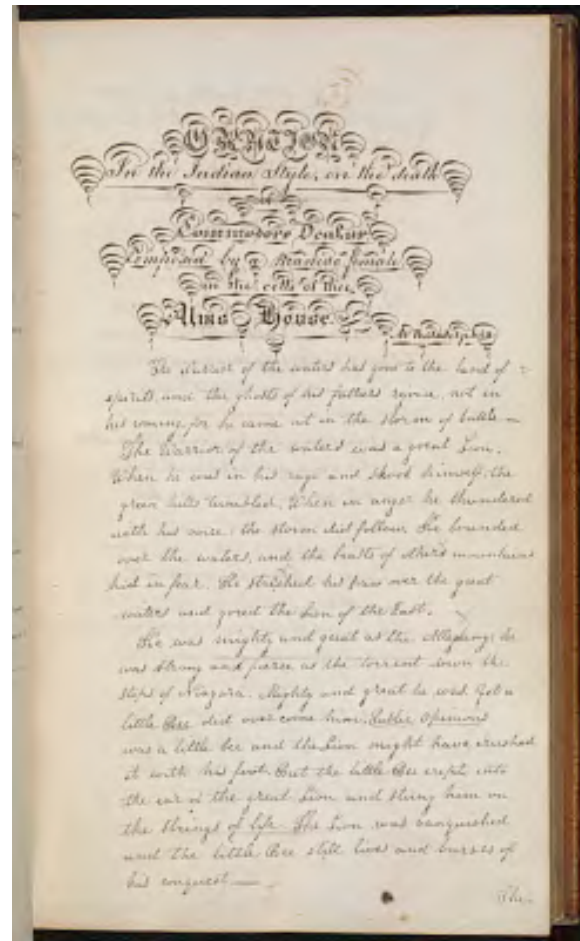 ORATION
In the Indian Style, on the death
of
Commodore Decatur
Composed by a Maniac female
in the cells of the
Alms House.
At Philadelphia
The Warrior of the waters has gone to the land of
spirits and the ghosts of his fathers rejoice, not in
his coming, for he came not in the storm of battle —
The Warrior of the waters was a great Lion.
When he was in his rage and shook himself, the
green hills trembled. When in anger he thundered
with his voice, the storm did follow. He bounded
over the waters, and the beasts of others mountains
hid in fear. He stretched his paw over the great
waters and gored the Lion of the East.
He was mighty and great as the Allegheny; he
was strong and fierce as the torrent down the
steps of Niagara. Mighty and great he was. Yet a
little Bee did over come him. Public Opinions
was a little bee and the Lion might have crushed
it with his foot. But the little Bee crept into
the ear of the great Lion and stung him on
the strings of life. The Lion was vanquished
and the little Bee still lives and buzzes of
his conquest —
The